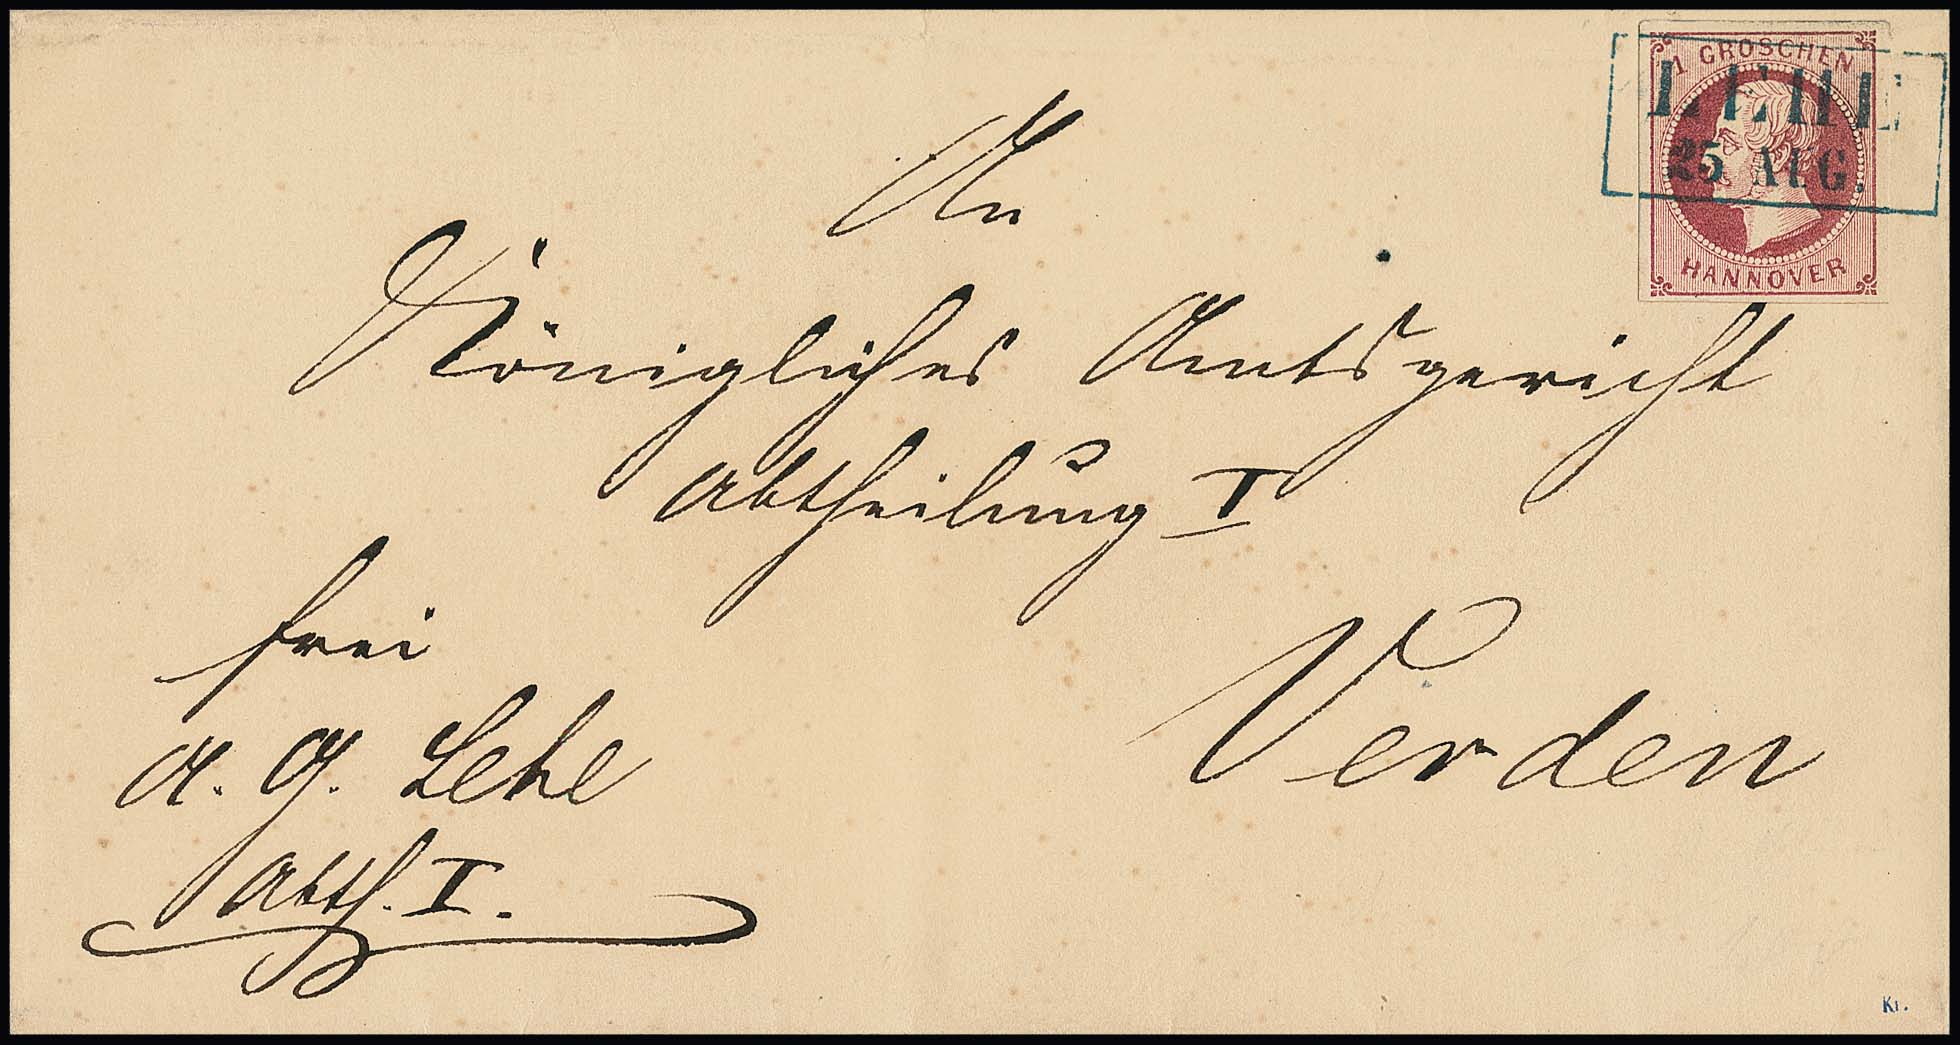 1 GROSCHEN
LEHE
25 AUG.
HANNOVER
An
Königliches Amtsgericht
Abtheilung I
Verden
frei
A. G. Lehe
Abth. I.
Kr.